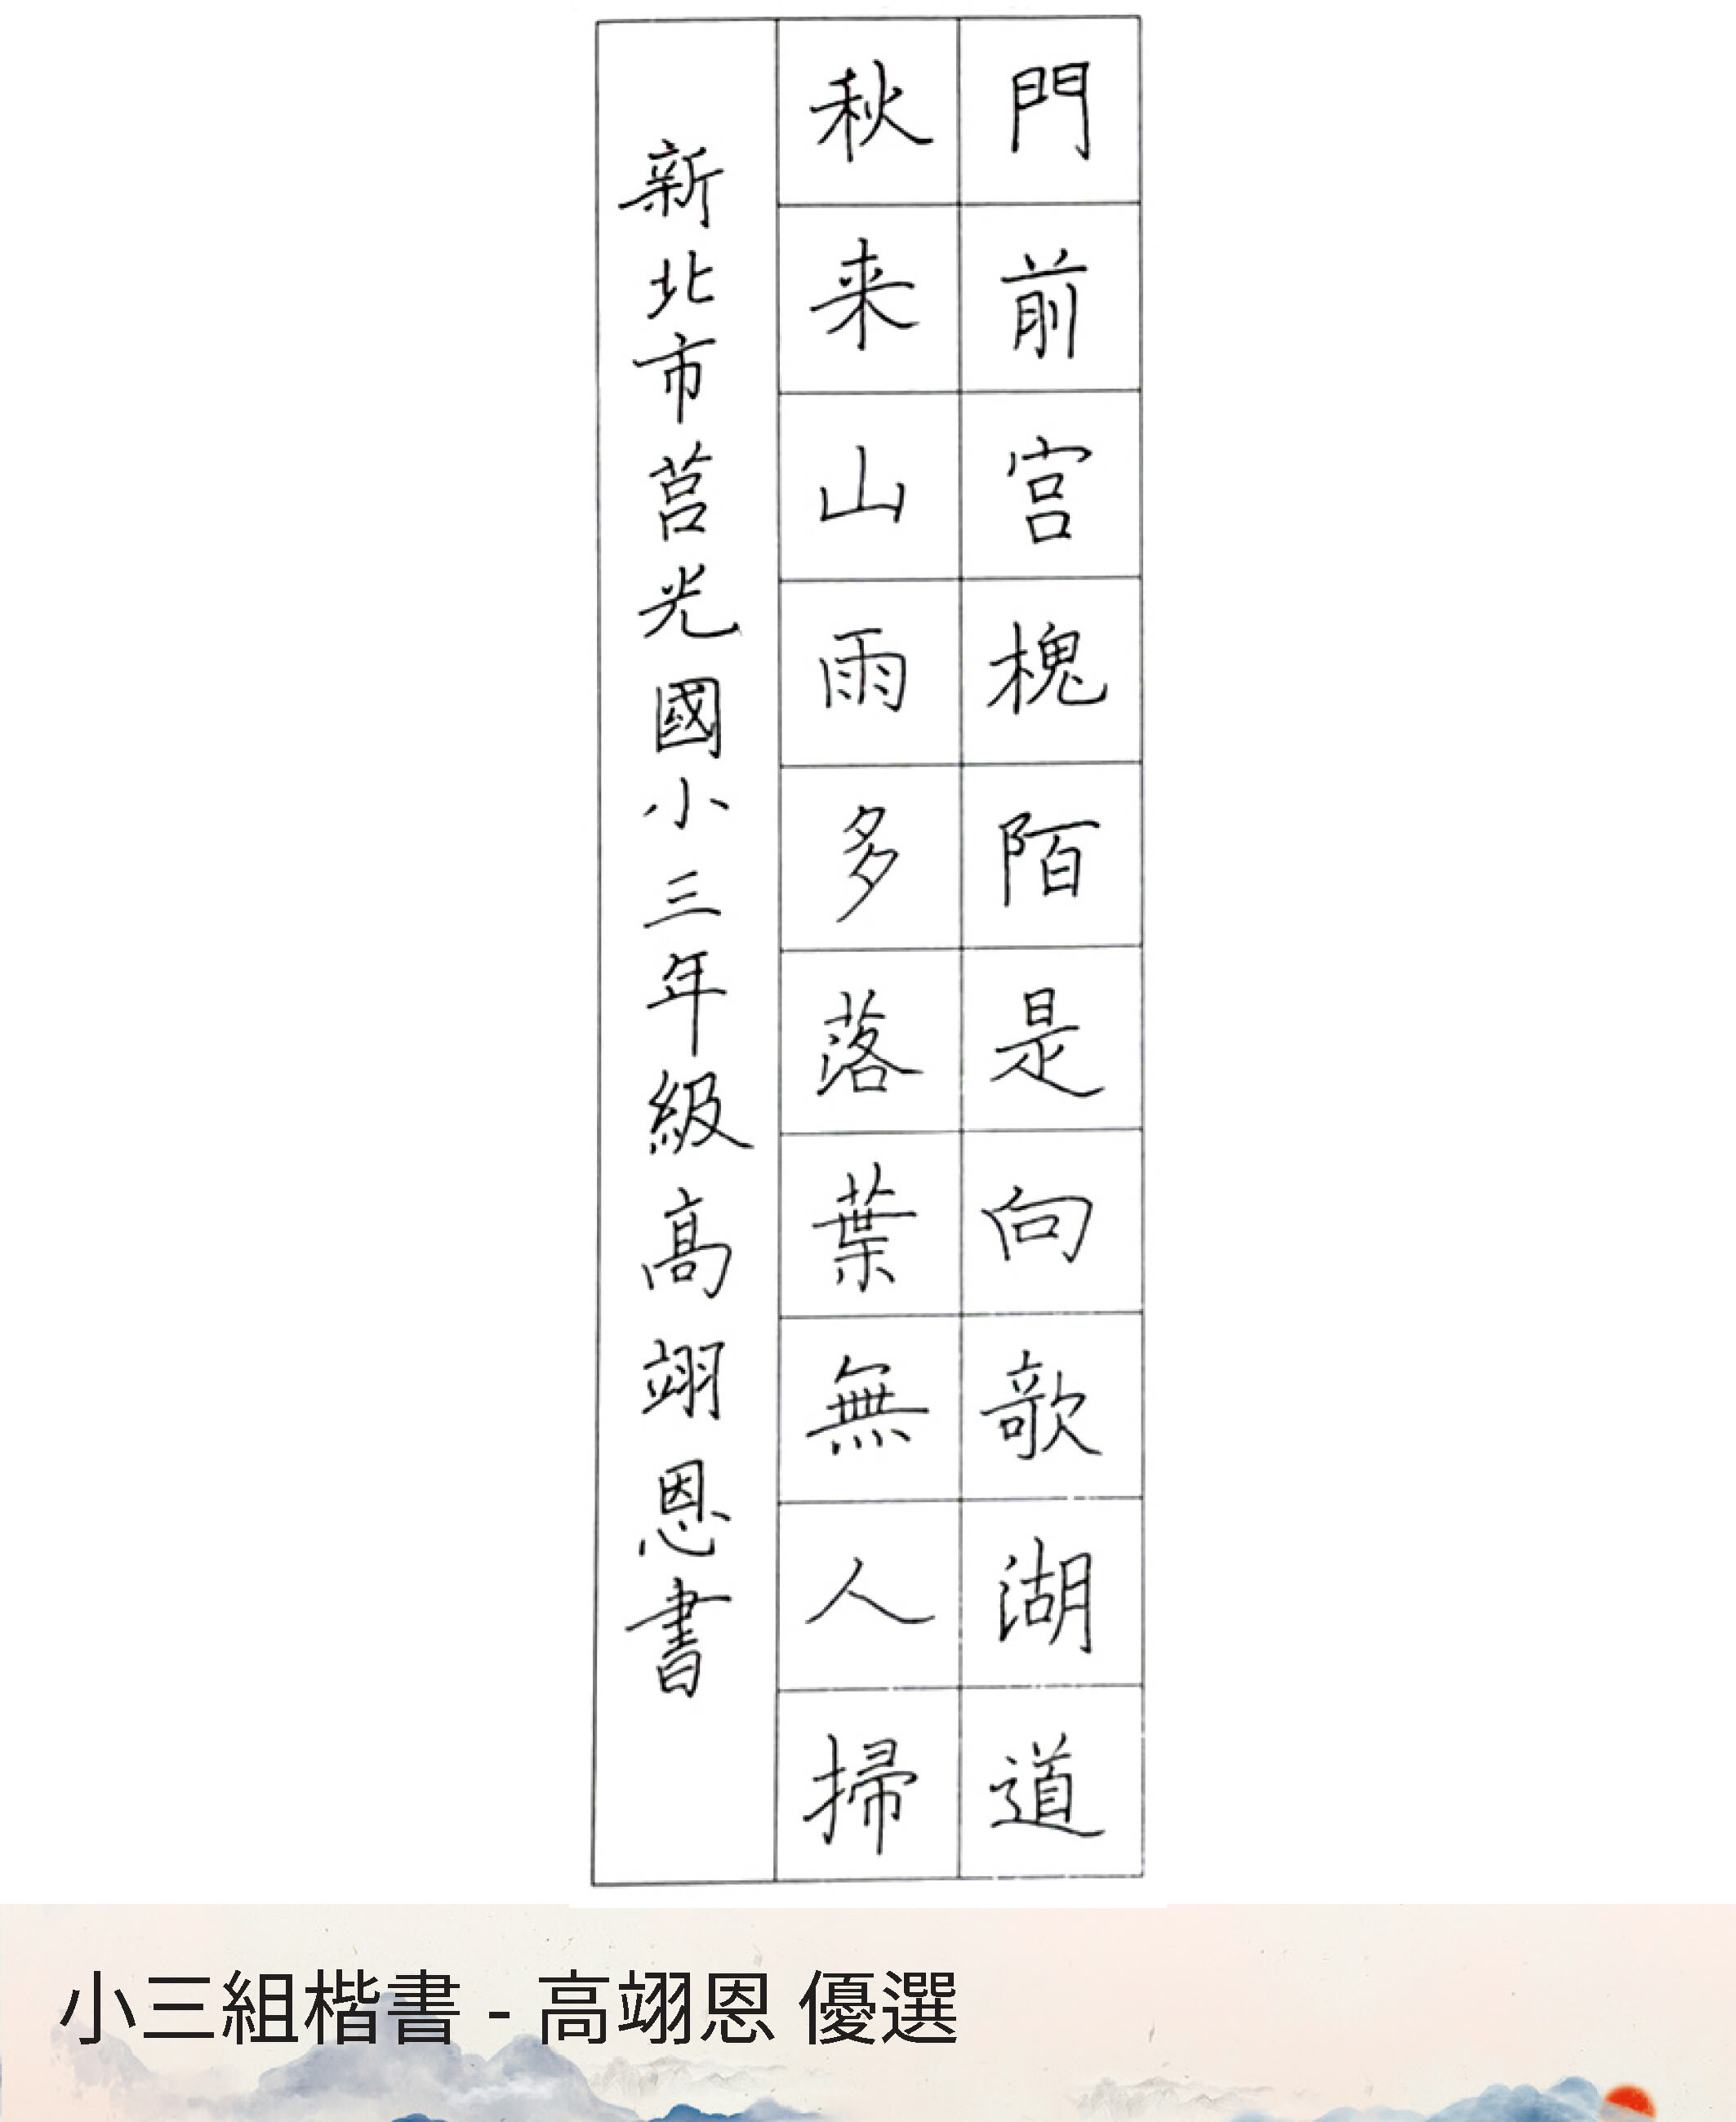 門前宮槐陌是向歌湖道
秋来山雨多落葉無人掃
新北市莒光國小三年級高翊恩書
小三組楷書 - 高翊恩 優選